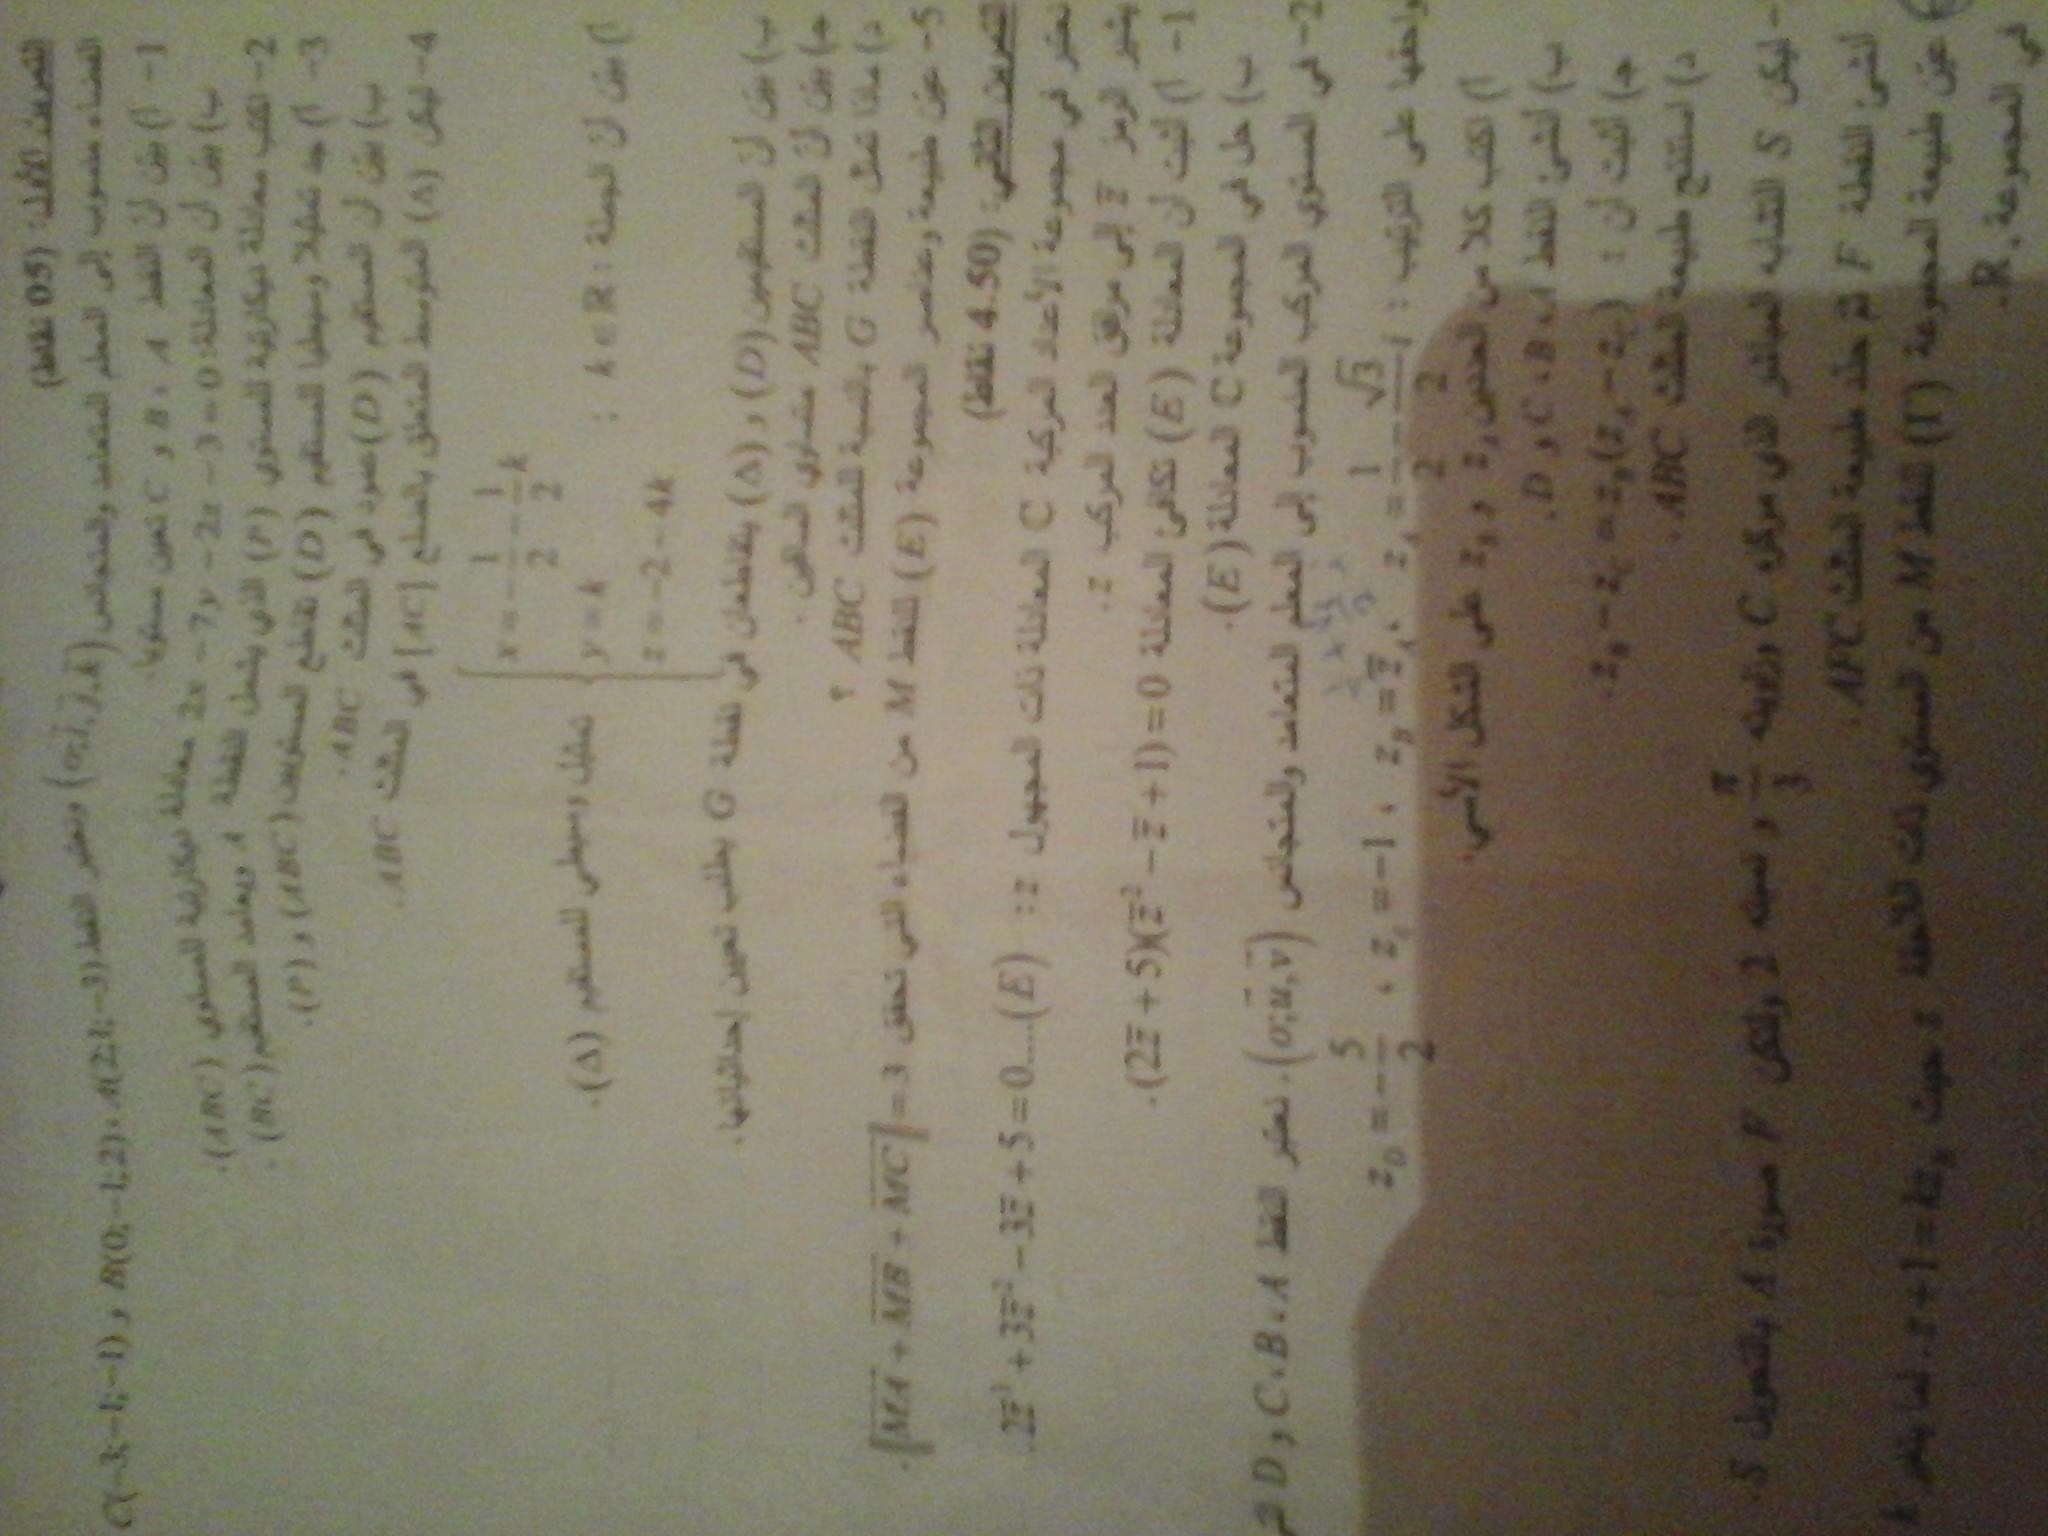 التمرين الأول: (05 نقاط)
الفضاء منسوب إلى المعلم المتعامد والمتجانس (o;i,j,k) ونعتبر النقط A(2;1;-3)، B(0;-1;2) و C(-3;-1;-1)
1- أ) بيّن أنّ النقط A ، B و C تعين مستويا.
ب) بيّن أن المعادلة: 2x-7y-2z-3=0 معادلة ديكارتية للمستوي (ABC).
2- اكتب معادلة ديكارتية للمستوي (P) الذي يشمل النقطة A ويعامد المستقيم (BC).
3- أ) جد تمثيلا وسيطيا للمستقيم (D) تقاطع المستويين (ABC) و (P).
ب) بيّن أن المستقيم (D) عمود في المثلث ABC.
4- ليكن (Δ) المتوسط المتعلق بالضلع [AC] في المثلث ABC.
أ) بيّن أنّ الجملة: { x = -1/2 - 1/2 k ; y = k ; z = -2 - 4k ; k∈ℝ : تمثيل وسيطي للمستقيم (Δ).
ب) بيّن أنّ المستقيمين (D) و (Δ) يتقاطعان في نقطة G يطلب تعيين إحداثياتها.
ج) بيّن أنّ المثلث ABC متساوي الساقين.
د) ماذا تمثل النقطة G بالنسبة للمثلث ABC ؟
5- عيّن طبيعة وعناصر المجموعة (E) للنقط M من الفضاء التي تحقق ‖MA+MB+MC‖=3.
التمرين الثاني: (4.50 نقاط)
نعتبر في مجموعة الأعداد المركبة C المعادلة ذات المجهول z: 2z̅³+3z̅²-3z̅+5=0....(E).
يشير الرمز z̅ إلى مرافق العدد المركب z.
1- أ) أثبت أن المعادلة (E) تكافئ المعادلة (2z̅+5)(z̅²-z̅+1)=0.
ب) حل في المجموعة C المعادلة (E).
2- في المستوي المركب المنسوب إلى المعلم المتعامد والمتجانس (o;u,v). نعتبر النقط A، B، C و D التي
لواحقها على الترتيب : z_A = 1/2 - √3/2 i ، z_B = z̅_A ، z_C = -1 ، z_D = -5/2
أ) اكتب كلا من العددين z_A و z_B على الشكل الأسي.
ب) أنشئ النقط A، B، C و D.
ج) أثبت أن : z_B - z_C = z_B(z_A - z_C).
د) استنتج طبيعة المثلث ABC.
- ليكن S التشابه المباشر الذي مركزه C وزاويته π/3 و نسبته 2 ولتكن F صورة A بالتحويل S.
أنشئ النقطة F ثم حدّد طبيعة المثلث AFC.
عيّن طبيعة المجموعة (Γ) للنقط M من المستوي ذات اللاحقة z حيث z+1=kz_B. لما يتغير k
في المجموعة ℝ.